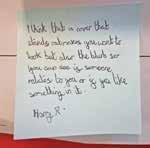 I think that a cover that
stands out makes you want to
look but also the blurb so
you can see is someone
relates to you or if you like
something in it.
Harry R.